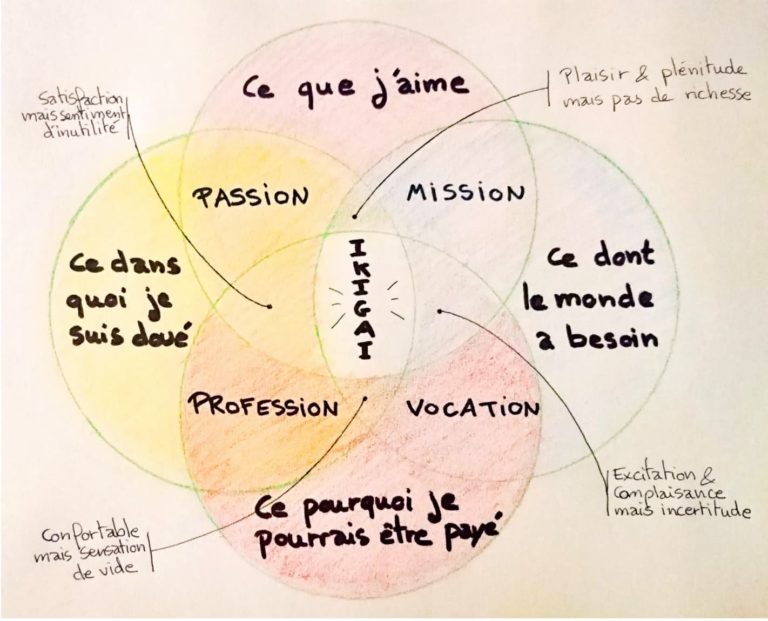 Ce que j'aime
Plaisir & plénitude
mais pas de richesse
Satisfaction
mais sentiment
d'inutilité
PASSION
MISSION
Ce dans
quoi je
suis doué
IKIGAI
Ce dont
le monde
a besoin
PROFESSION
VOCATION
Ce pourquoi je
pourrais être payé
Excitation &
Complaisance
mais incertitude
Confortable
mais sensation
de vide